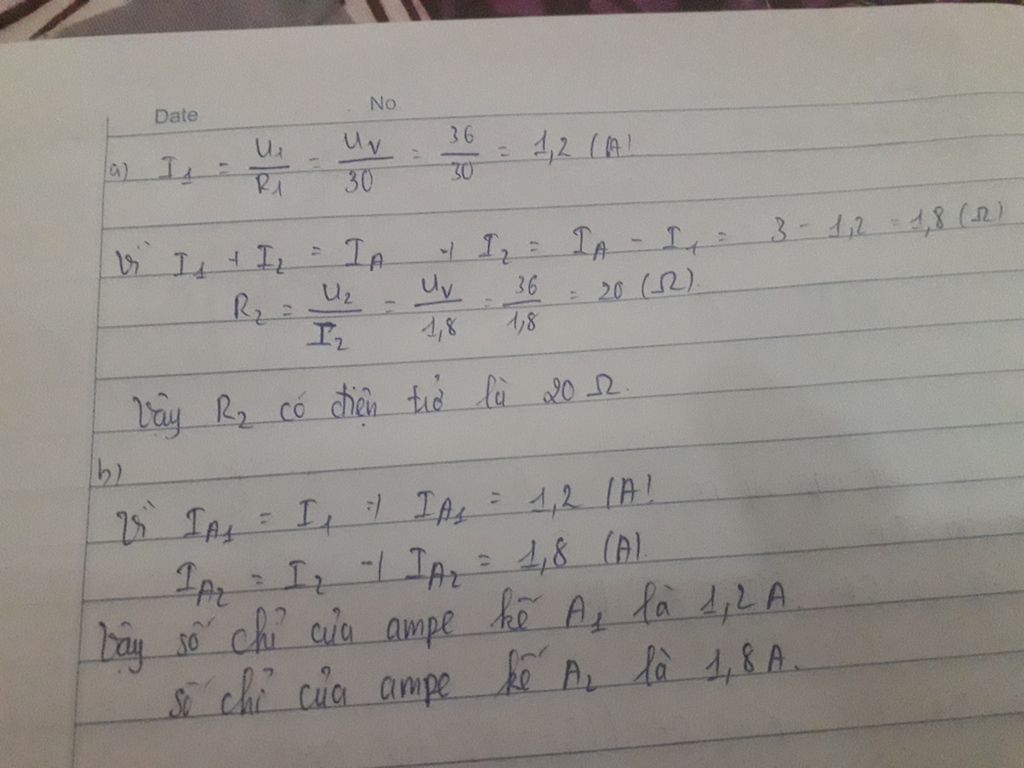 Date No
a) I₁ = U₁/R₁ = Uv/30 = 36/30 = 1,2 (A)
Vì I₁ + I₂ = I_A → I₂ = I_A - I₁ = 3 - 1,2 = 1,8 (Ω)
R₂ = U₂/I₂ = Uv/1,8 = 36/1,8 = 20 (Ω).
Vậy R₂ có điện trở là 20 Ω.
b)
Vì I_A₁ = I₁ → I_A₁ = 1,2 (A)
I_A₂ = I₂ → I_A₂ = 1,8 (A).
Vậy số chỉ của ampe kế A₁ là 1,2 A
số chỉ của ampe kế A₂ là 1,8 A.